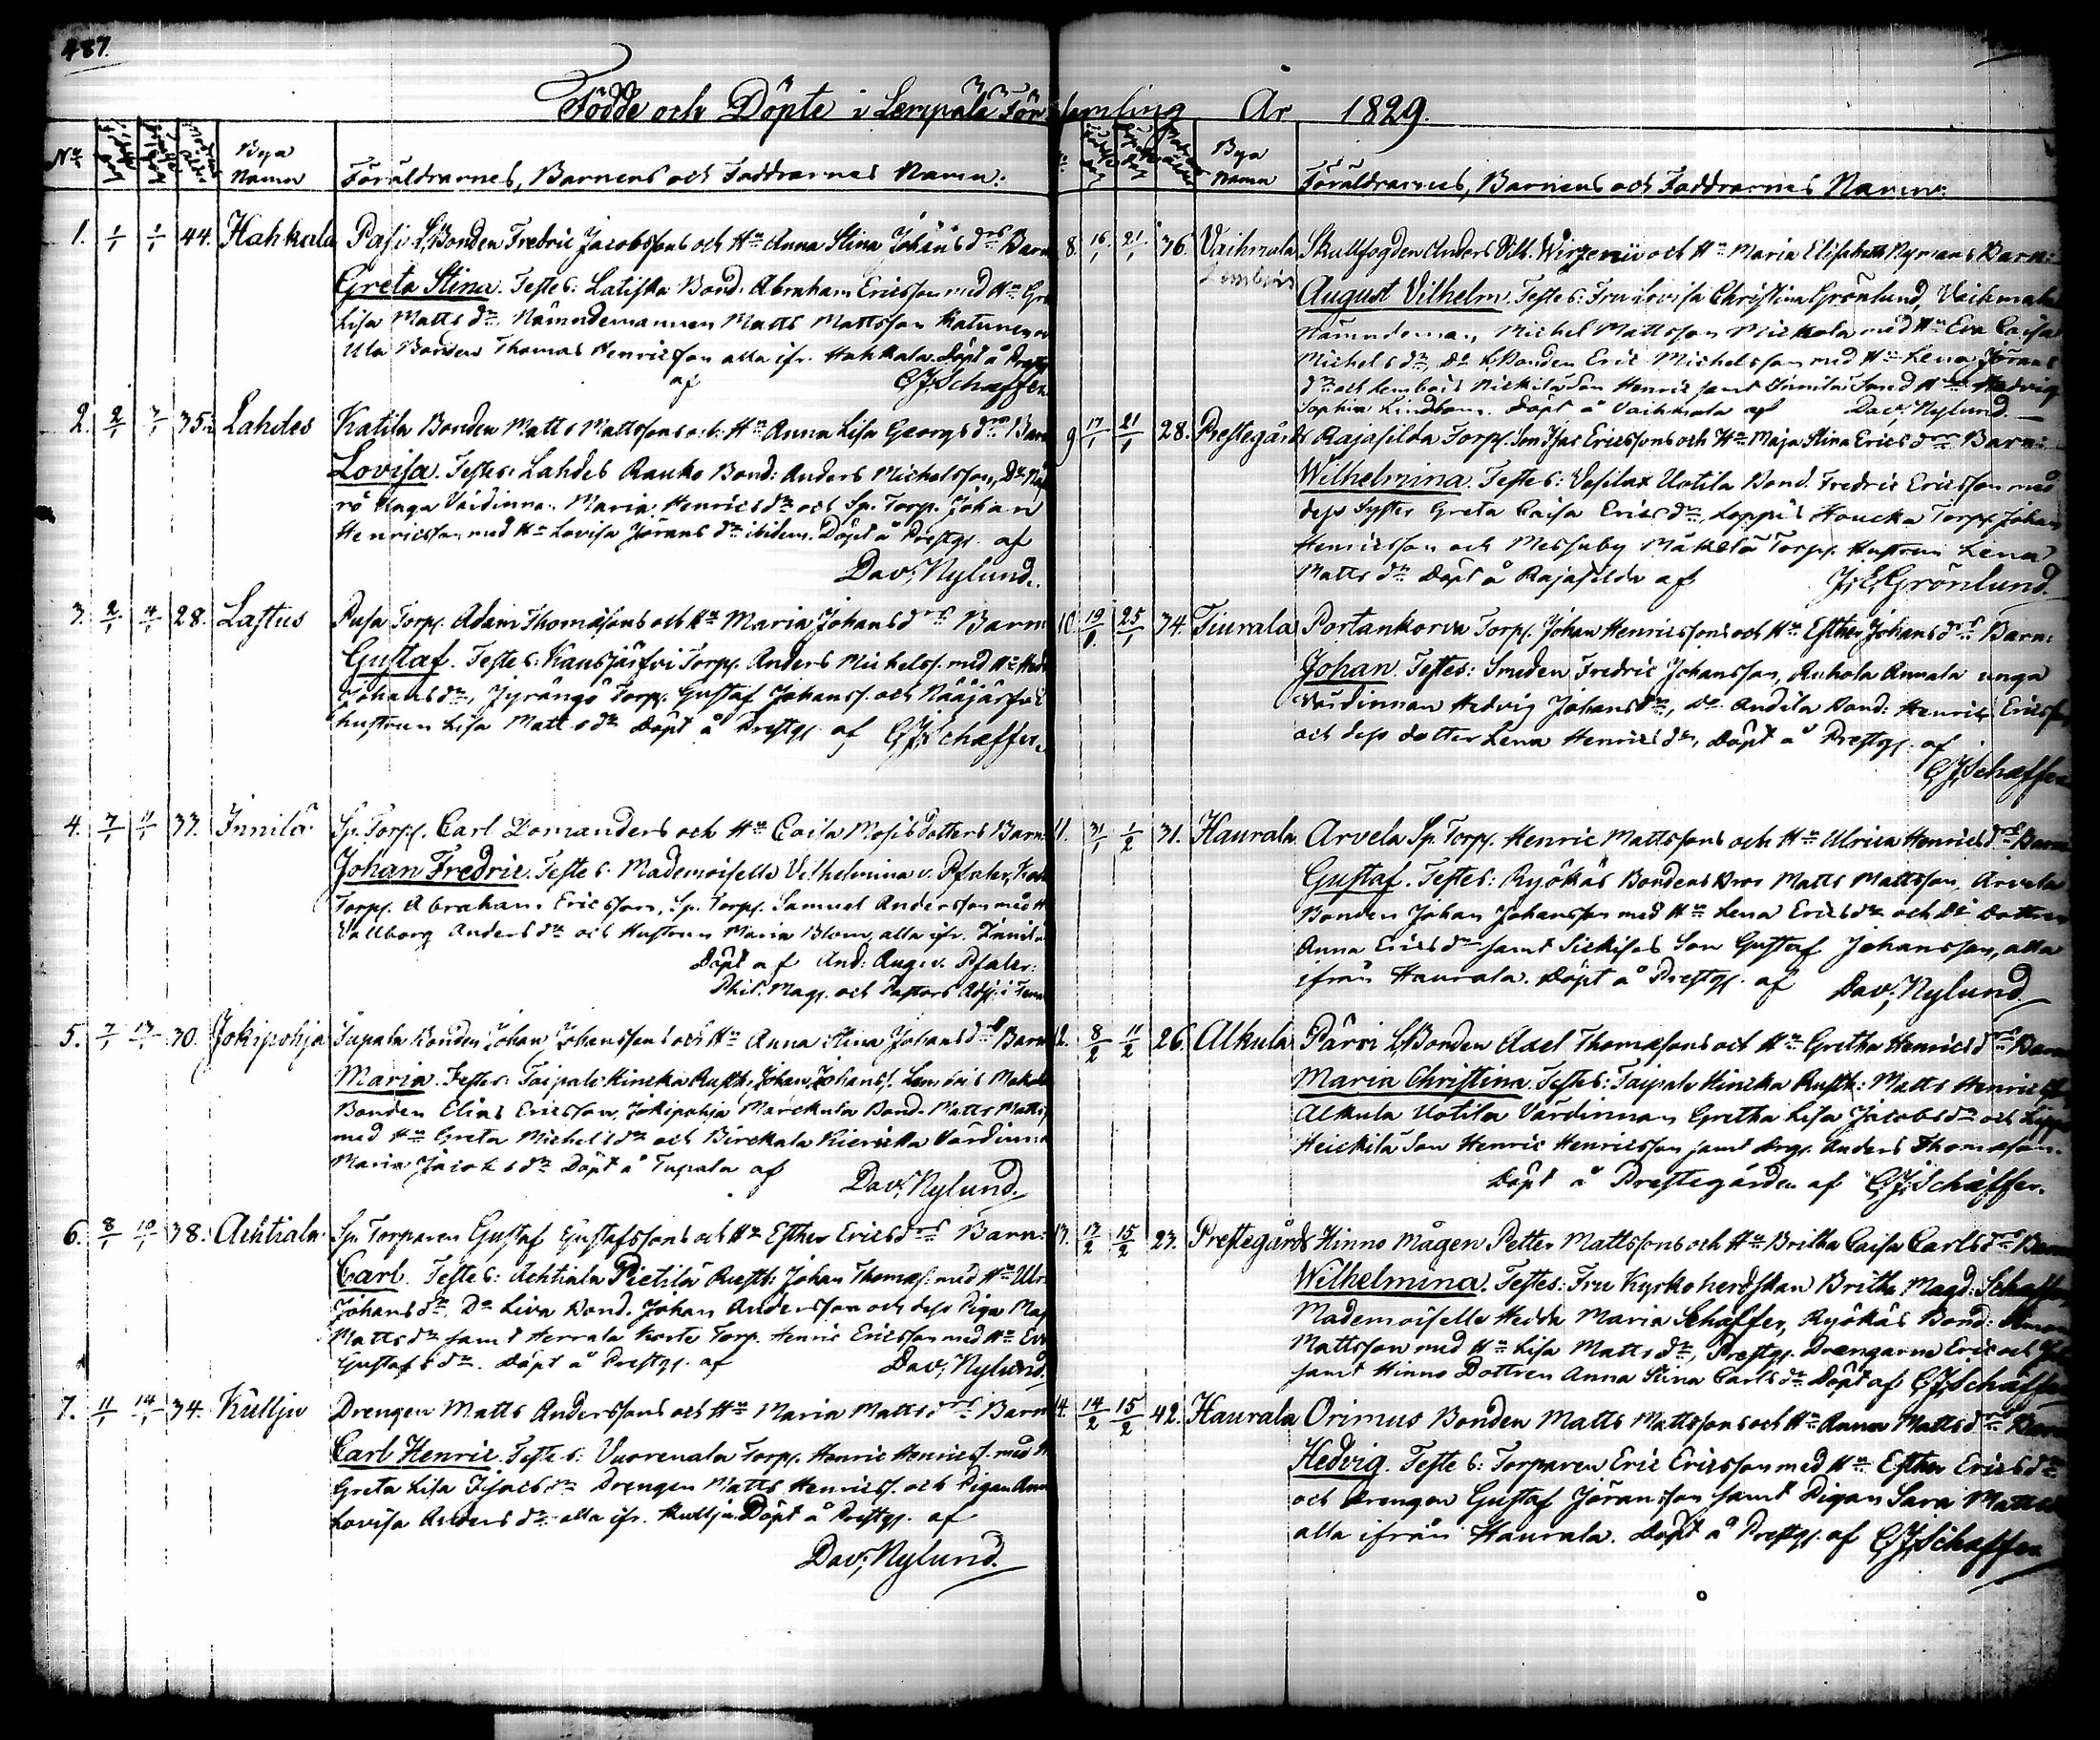 487.
Födde och Döpte i Lempälä Församling År 1829.
No Bya Namn Föräldrarnes, Barnens och Faddrarnes Namn:
1. 1/1 1/1 44. Hahkala Pasi Bonden Fredric Jacobssons och Hu Anna Stina Johans drs Barn
Greta Stina. Testes: Latiska Bond. Abraham Ericsson med Hu
Lisa Matts dr. Nämndemannen Matts Mattsson
Ula Bonden Thomas Henricsson alla ifr. Hahkala. Döpt å Prestg.
af CJSchæffer
2. 2/1 35. Lahdes Katila Bonden Matts Mattssons och Hu Anna Lisa Georgs drs Barn
Lovisa. Testes: Lahdes Rauko Bond: Anders Michelsson,
unga Värdinna Maria Henrics dr och Sp. Torp. Johan
Henricsson med Hu Lovisa Jörans dr ibidem. Döpt å Prestg. af
Dav: Nylund.
3. 2/1 4/1 28. Lastus Pusa Torp. Adam Thomæsons och Hu Maria Johans drs Barn
Gustaf. Testes: Kausjärfvi Torp. Anders Michelss. med Hu
Johans dr, Torp. Gustaf Johanss. och Nääjärfvi
hustrun Lisa Matts dr Döpt å Prestg. af CJSchæffer
4. 7/1 11/1 37. Innilä. Sp. Torp. Carl Lomanders och Hu Caisa Mosis dotters Barn:
Johan Fredric. Testes: Mademoiselle Vilhelmina v. Pfaler,
Torp. Abraham Ericsson, Sp. Torp. Samuel Andersson med H
Vallborg Anders dr och Hustrun Maria Blom, alla ifr. Innilä
Döpt af And: Aug: v. Pfaler:
Phil. Mag. och Pastors Adj. i
5. 7/1 13/1 30. Jokipohja Tupala Bonden Johan Johanssons och Hu Anna Stina Johans drs Barn
Maria. Testes: Taipale Hincka Rusth. Johan Johanss.
Bonden Elias Ericsson, Jokipohja Bond. Matts Matts
med Hu Greta Michels dr och Birckala Värdinna
Maria Jacobs dr Döpt å Tupala af Dav: Nylund.
6. 8/1 10/1 38. Achtiala. Sp. Torparen Gustaf Gustafssons och Hu Esther Erics drs Barn:
Carl. Testes: Achtiala Pietilä Rusth: Johan Thomæs. med Hu Ulr
Johans dr, Do Bond. Johan Andersson och dess Piga Maj
Matts dr samt Herrala Torp. Henric Ericsson med Hu Eva
Gustafs dr. Döpt å Prestg. af Dav: Nylund.
7. 11/1 14/1 34. Kullju Drengen Matts Anderssons och Hu Maria Matts drs Barn
Carl Henric. Testes: Vuorenala Torp. Henric Henricss. med H
Greta Lisa dr Drengen Matts Henricss. och Pigan Ann
Lovisa Anders dr alla ifr. Kullju. Döpt å Prestg. af
Dav: Nylund.
Bya Namn Föräldrarnes, Barnens och Faddrarnes Namn:
8. 16/1 21/1 36. Vaihmala Skallfogden Anders Vilh. Wirzenii och Hu Maria Elisabeth Nymans Barn:
August Vilhelm. Testes: Fru Lovisa Christina Grönlund, Vaihmala
Nämndeman, Michel Mattsson Mickola med Hu Eva Caisa
Michels dr, Do Bonden Eric Michelsson med Hu Lena Jörans
dr och Son Henric samt Innilä Smed Hu Hedvig
Sophia Lindbom. Döpt å Vaihmala af Dav: Nylund.
9. 17/1 21/1 28. Prestegårds Rajasilda Torp. Son Isac Ericssons och Hu Maja Stina Erics drs Barn:
Wilhelmina. Testes: Uotila Bond. Fredric Ericsson med
dess Syster Greta Caisa Erics dr, Torp. Johan
Henricsson och Messuby Torp. Hustrun Lena
Matts dr Döpt å Rajasilda af J.E.Grönlund.
10. 19/1 25/1 34. Tiurala Portankorva Torp. Johan Henricssons och Hu Esther Johans drs Barn:
Johan. Testes: Smeden Fredric Johansson, unga
Värdinnan Hedvig Johans dr, Do Bond: Henric Ericsson
och dess dotter Lena Henrics dr, Döpt å Prestg. af
CJSchæffer
11. 31/1 1/2 31. Haurala Arvela Sp. Torp. Henric Mattssons och Hu Ulrica Henrics drs Barn
Gustaf. Testes: Ryökäs Bondens Bror Matts Mattsson, Arvela
Bonden Johan Johansson med Hu Lena Erics dr och Do Dottren
Anna Erics dr samt Son Gustaf Johansson, alla
ifrån Haurala. Döpt å Prestg. af Dav: Nylund.
12. 8/2 11/2 26. Alkula Pärri Bonden Axel Thomæsons och Hu Gretha Henrics drs Barn
Maria Christina. Testes: Taipale Hincka Rusth: Matts Henricss
Alkula Uotila Värdinnan Gretha Lisa Jacobs dr och
Heickilä Son Henric Henricsson samt Drg. Anders Thomæson.
Döpt å Prestegården af CJSchæffer.
13. 13/2 15/2 23. Prestegårds Hinno Mågen Petter Mattssons och Hu Britha Caisa Carls drs Barn
Wilhelmina. Testes: Fru Kyrkoherdskan Britha Magd: Schæffer,
Mademoiselle Hedda Maria Schæffer, Ryökäs Bond:
Mattsson med Hu Lisa Matts dr, Prestg. Drengarne Eric och
samt Hinno Dottren Anna Stina Carls dr Döpt af CJSchæffer
14. 14/2 15/2 42. Haurala Orimus Bonden Matts Mattssons och Hu Anna Matts drs Barn
Hedvig. Testes: Torparen Eric Ericsson med Hu Esther Erics dr
och Drengen Gustaf Jöransson samt Pigan Sara Matts
alla ifrån Haurala. Döpt å Prestg. af CJSchæffer